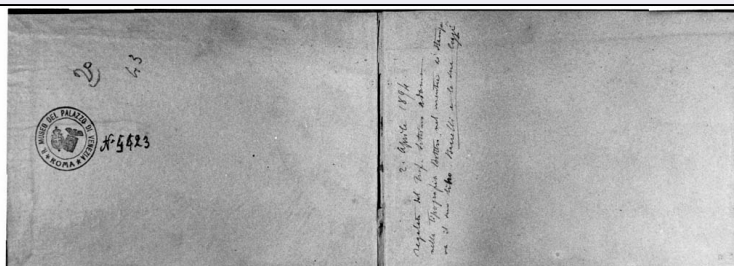 20
43
R. MUSEO DEL PALAZZO DI VENEZIA
ROMA
N. 5423
21 Aprile 1894
regalato dal Prof. Vittorio
nella Tipografia nel mentre si stampa
va il suo libro e le sue leggi